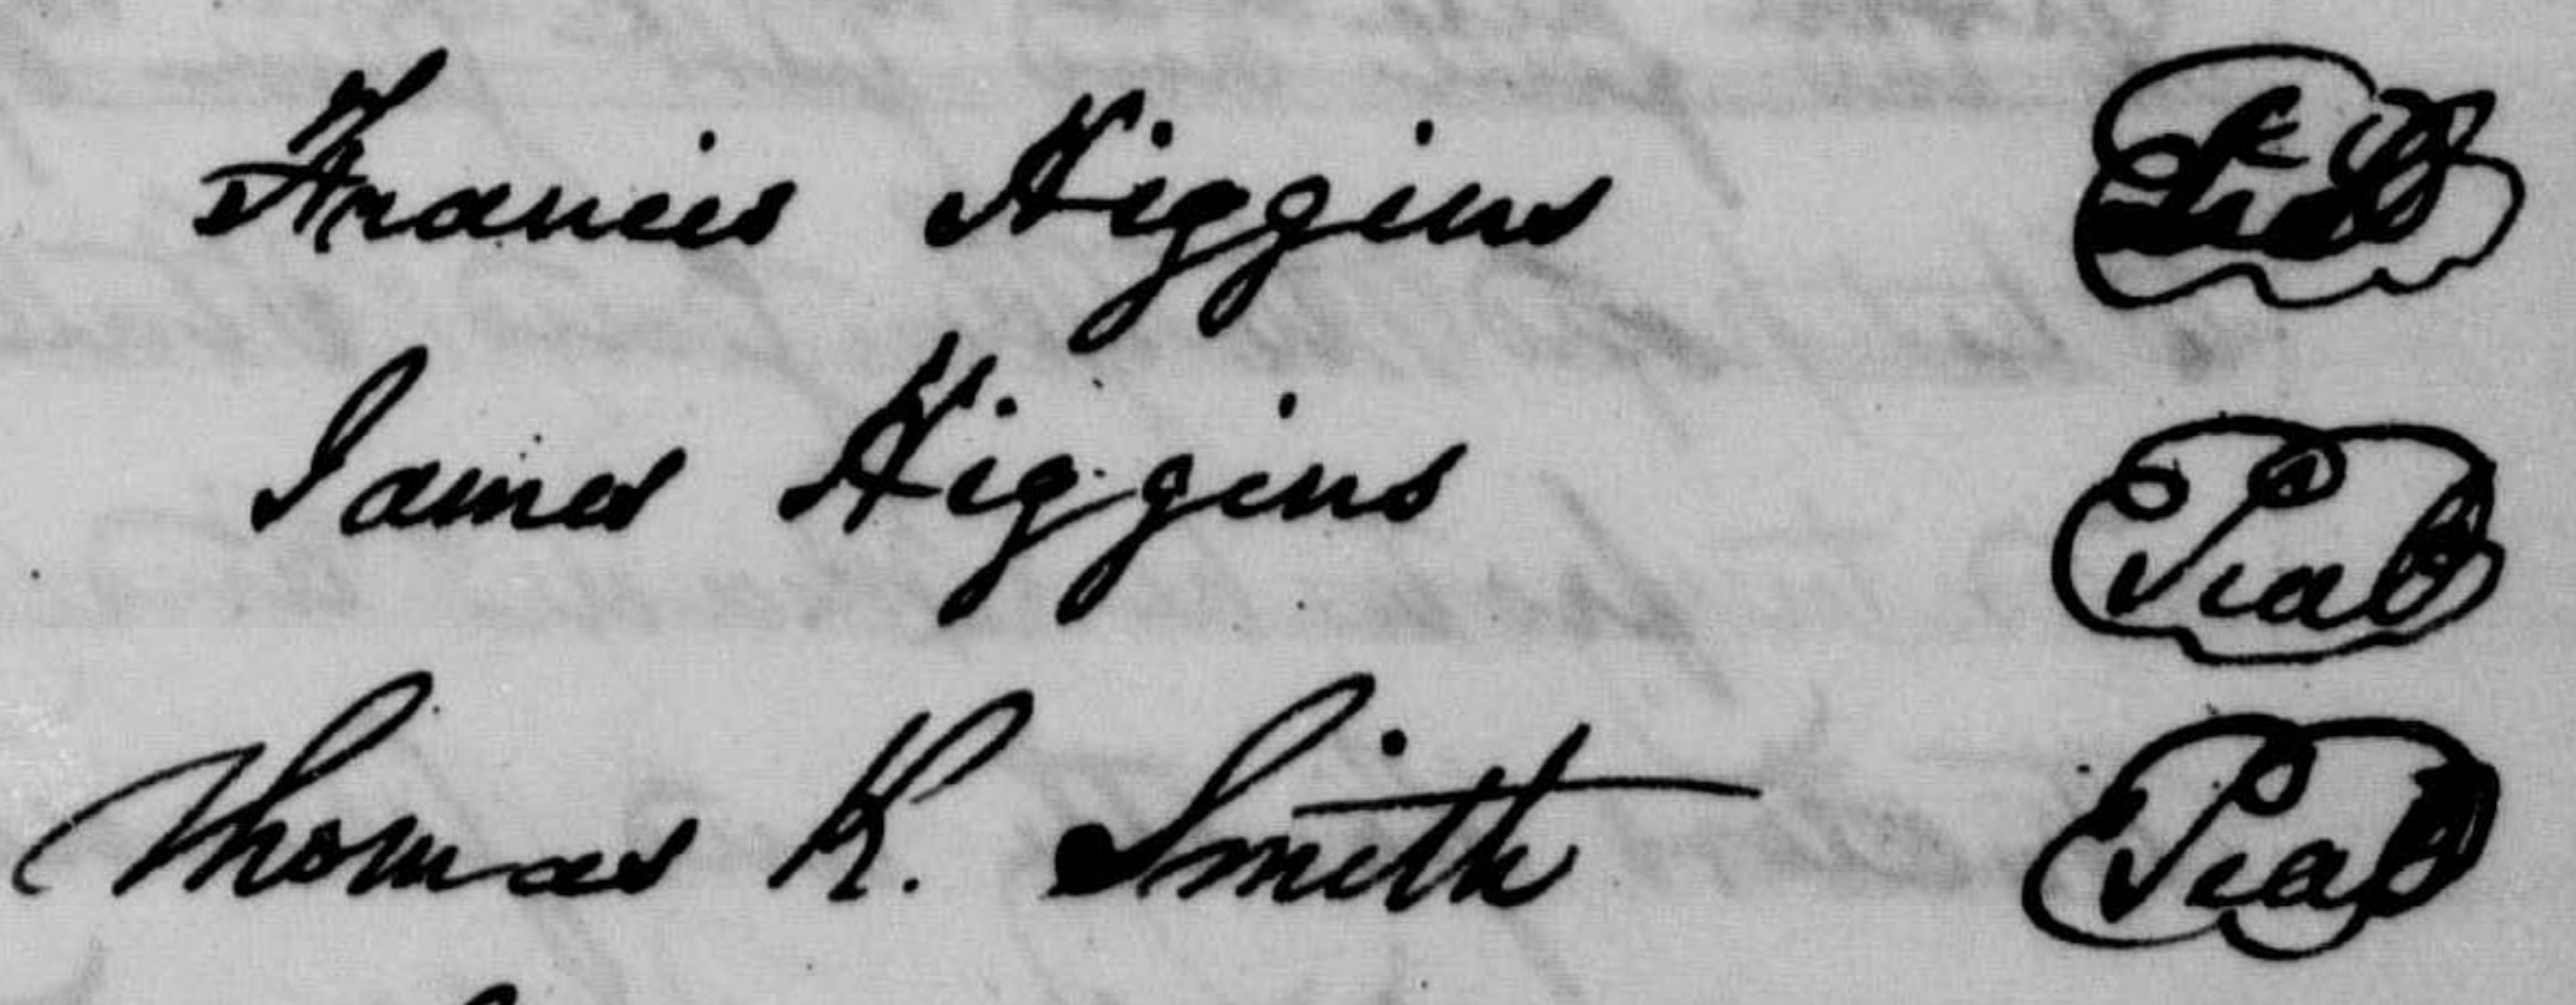 Francis Higgins Seal
James Higgins Seal
Thomas K. Smith Seal